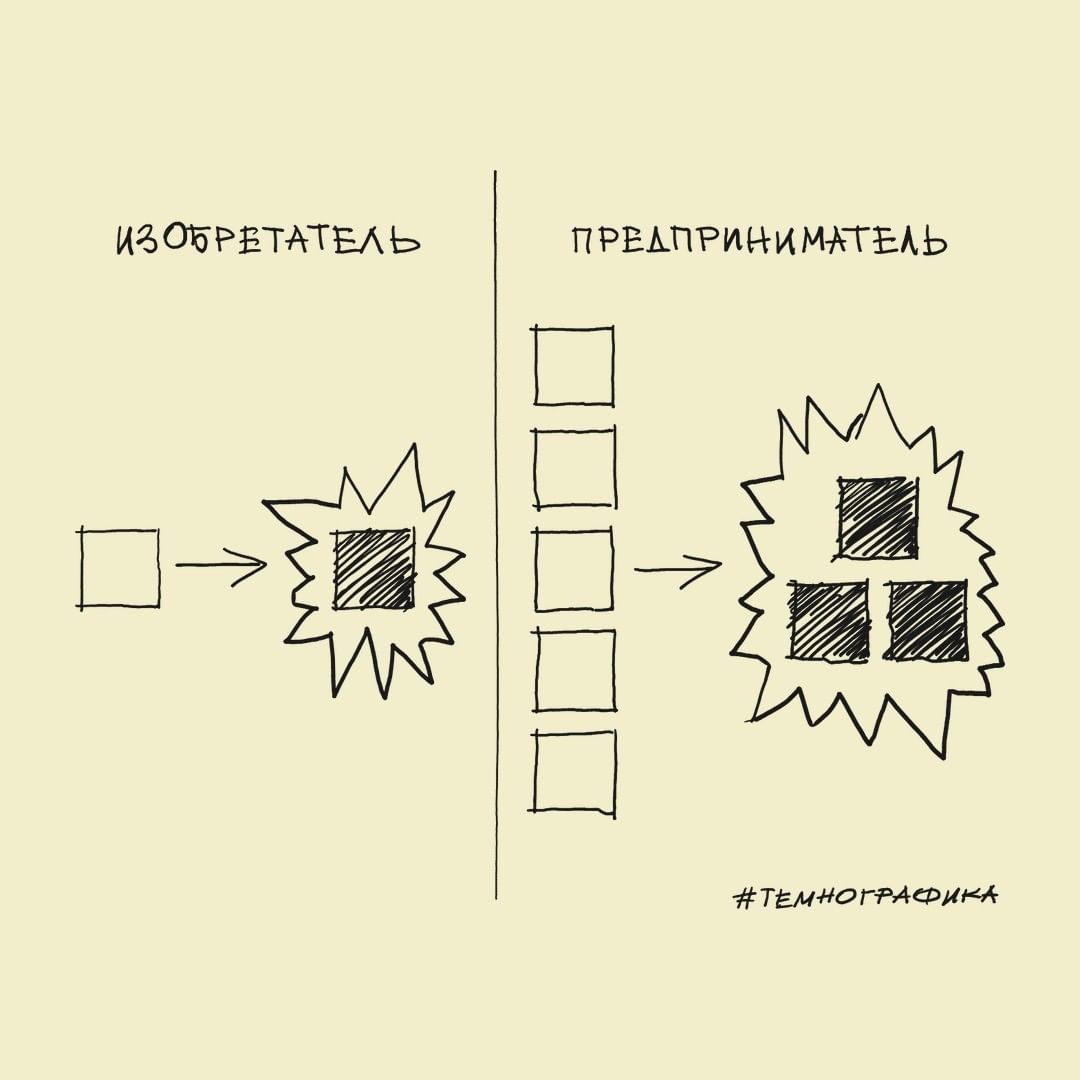 ИЗОБРЕТАТЕЛЬ
ПРЕДПРИНИМАТЕЛЬ
#ТЕМНОГРАФИКА